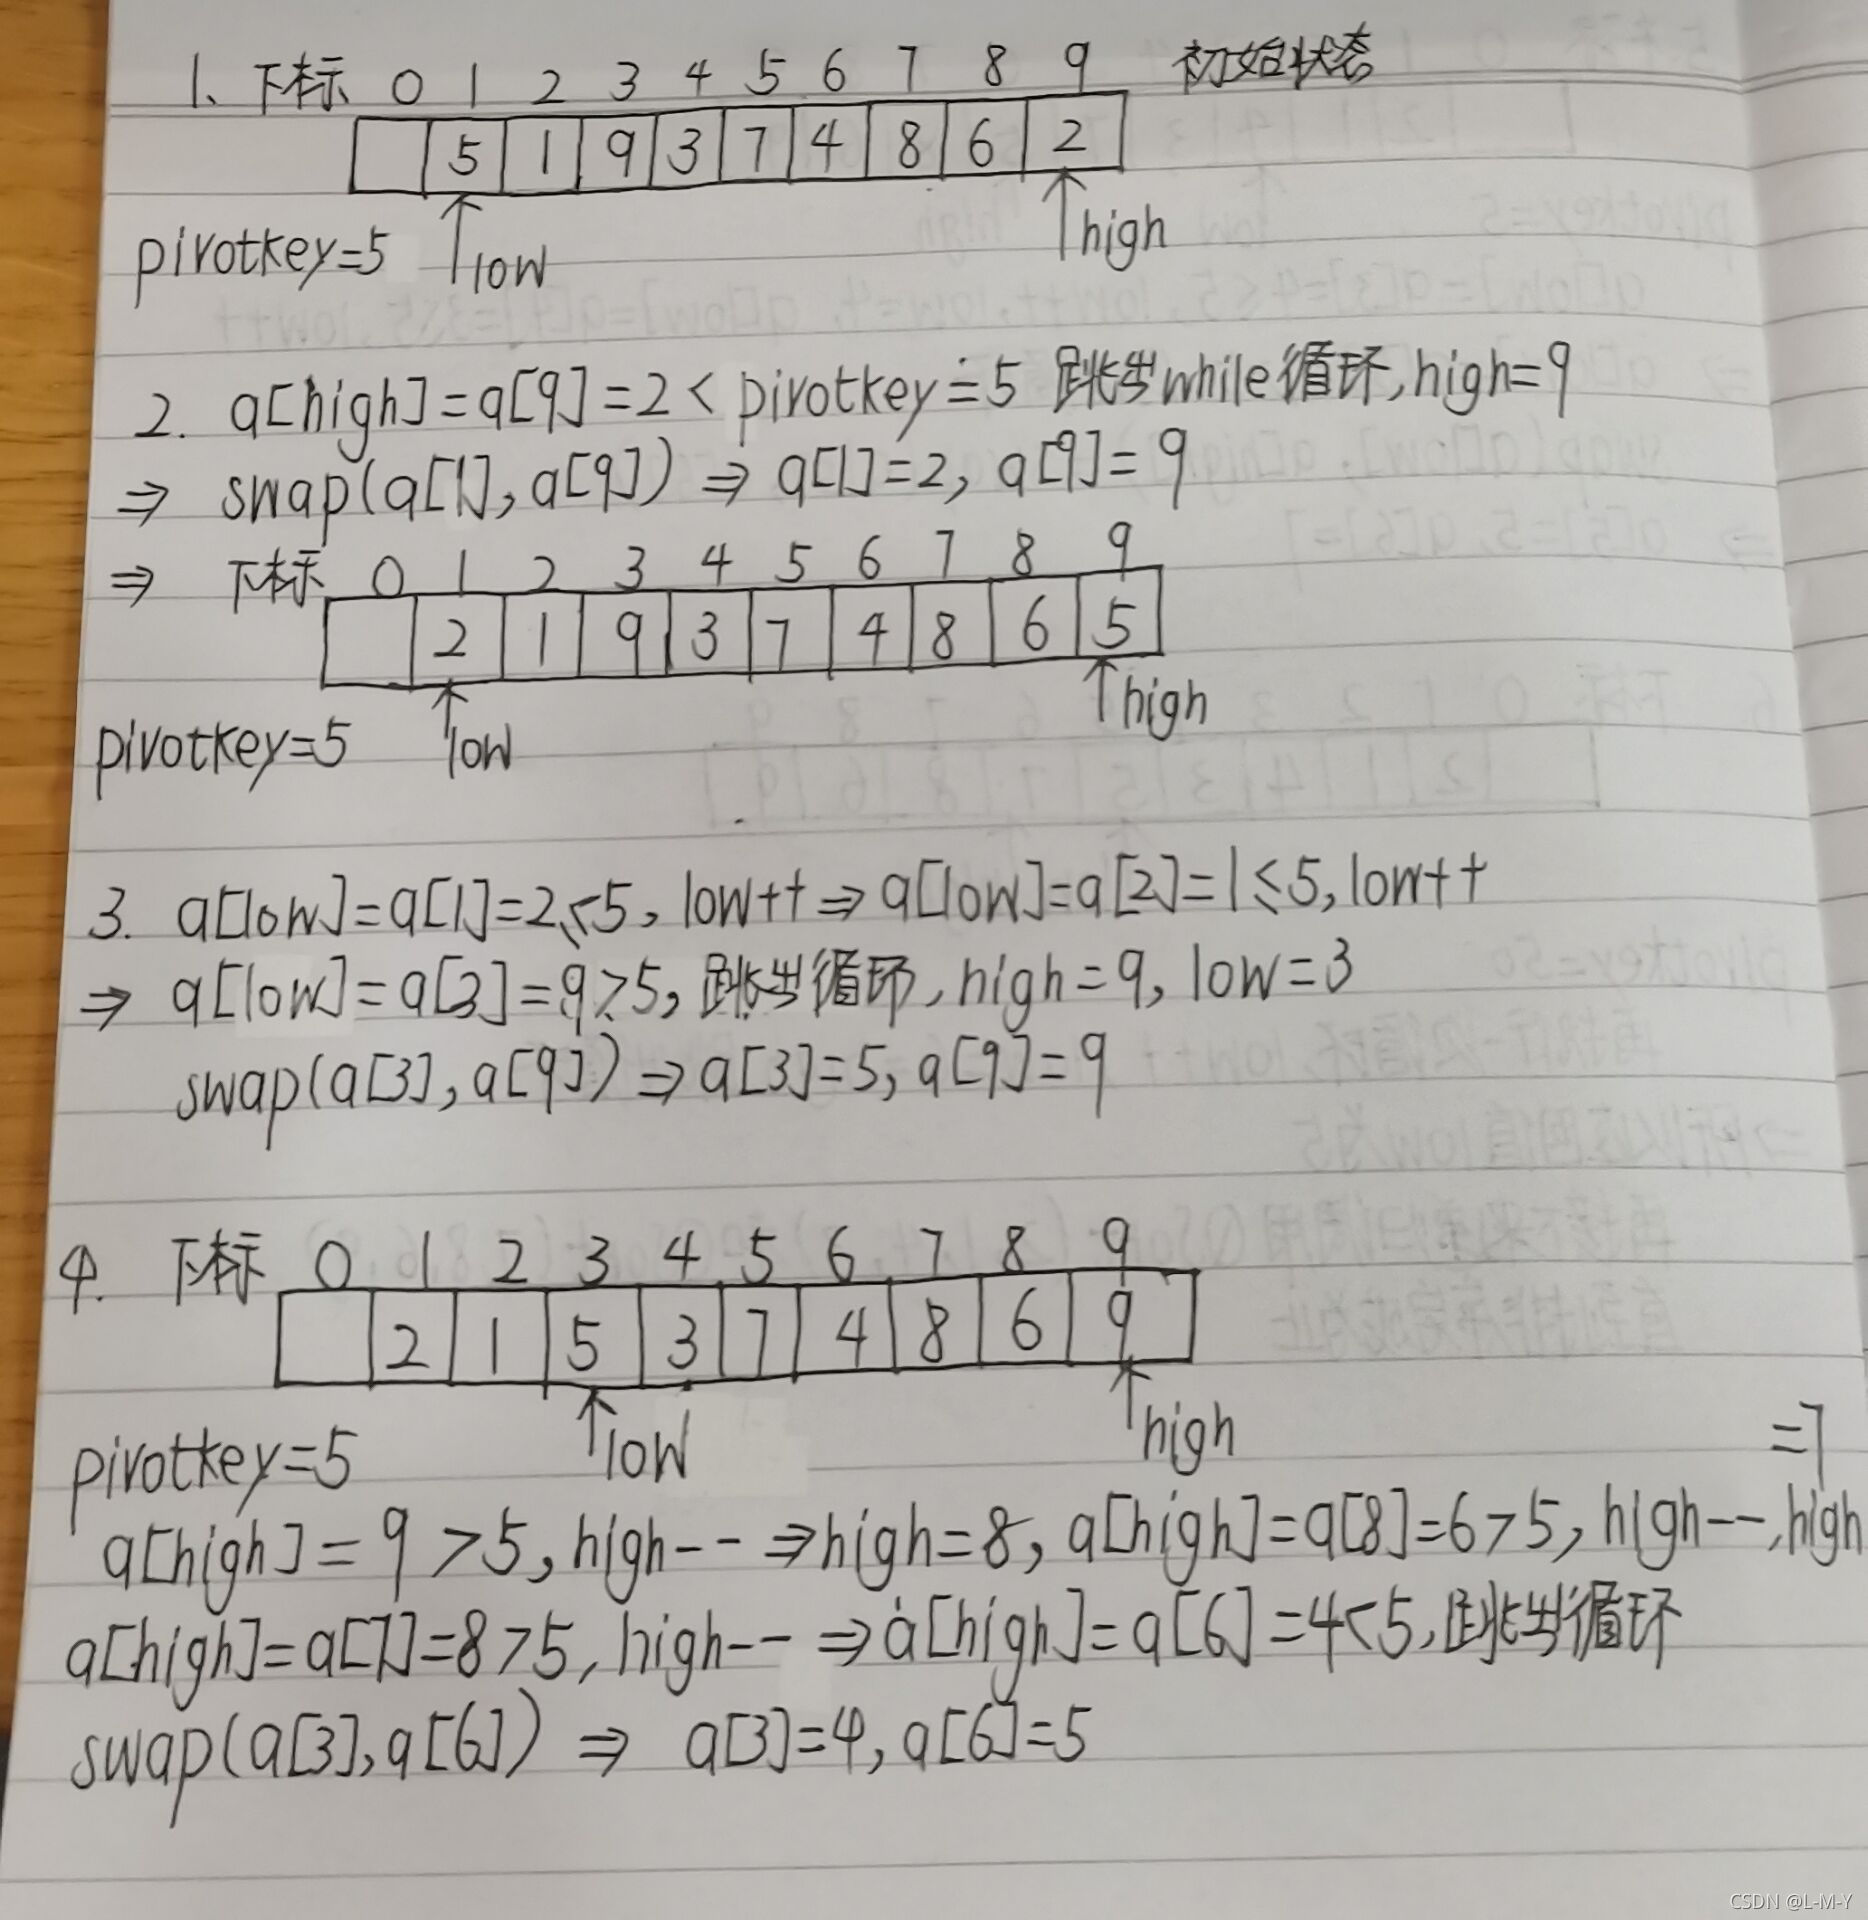 1、下标 0 1 2 3 4 5 6 7 8 9 初始状态
5 1 9 3 7 4 8 6 2
pivotkey=5 low high
2. a[high]=a[9]=2< pivotkey=5 跳出while循环,high=9
⇒ swap(a[1],a[9]) ⇒ a[1]=2, a[9]=9
⇒ 下标 0 1 2 3 4 5 6 7 8 9
2 1 9 3 7 4 8 6 5
pivotkey=5 low high
3. a[low]=a[1]=2≤5, low++⇒a[low]=a[2]=1≤5,low++
⇒ a[low]=a[3]=9>5, 跳出循环, high=9, low=3
swap(a[3],a[9])⇒a[3]=5,a[9]=9
4. 下标 0 1 2 3 4 5 6 7 8 9
2 1 5 3 7 4 8 6 9
pivotkey=5 low high
a[high]=9>5,high--⇒high=8, a[high]=a[8]=6>5, high--,high=7
a[high]=a[7]=8>5, high--⇒a[high]=a[6]=4<5,跳出循环
swap(a[3],a[6]) ⇒ a[3]=4,a[6]=5
CSDN @L-M-Y